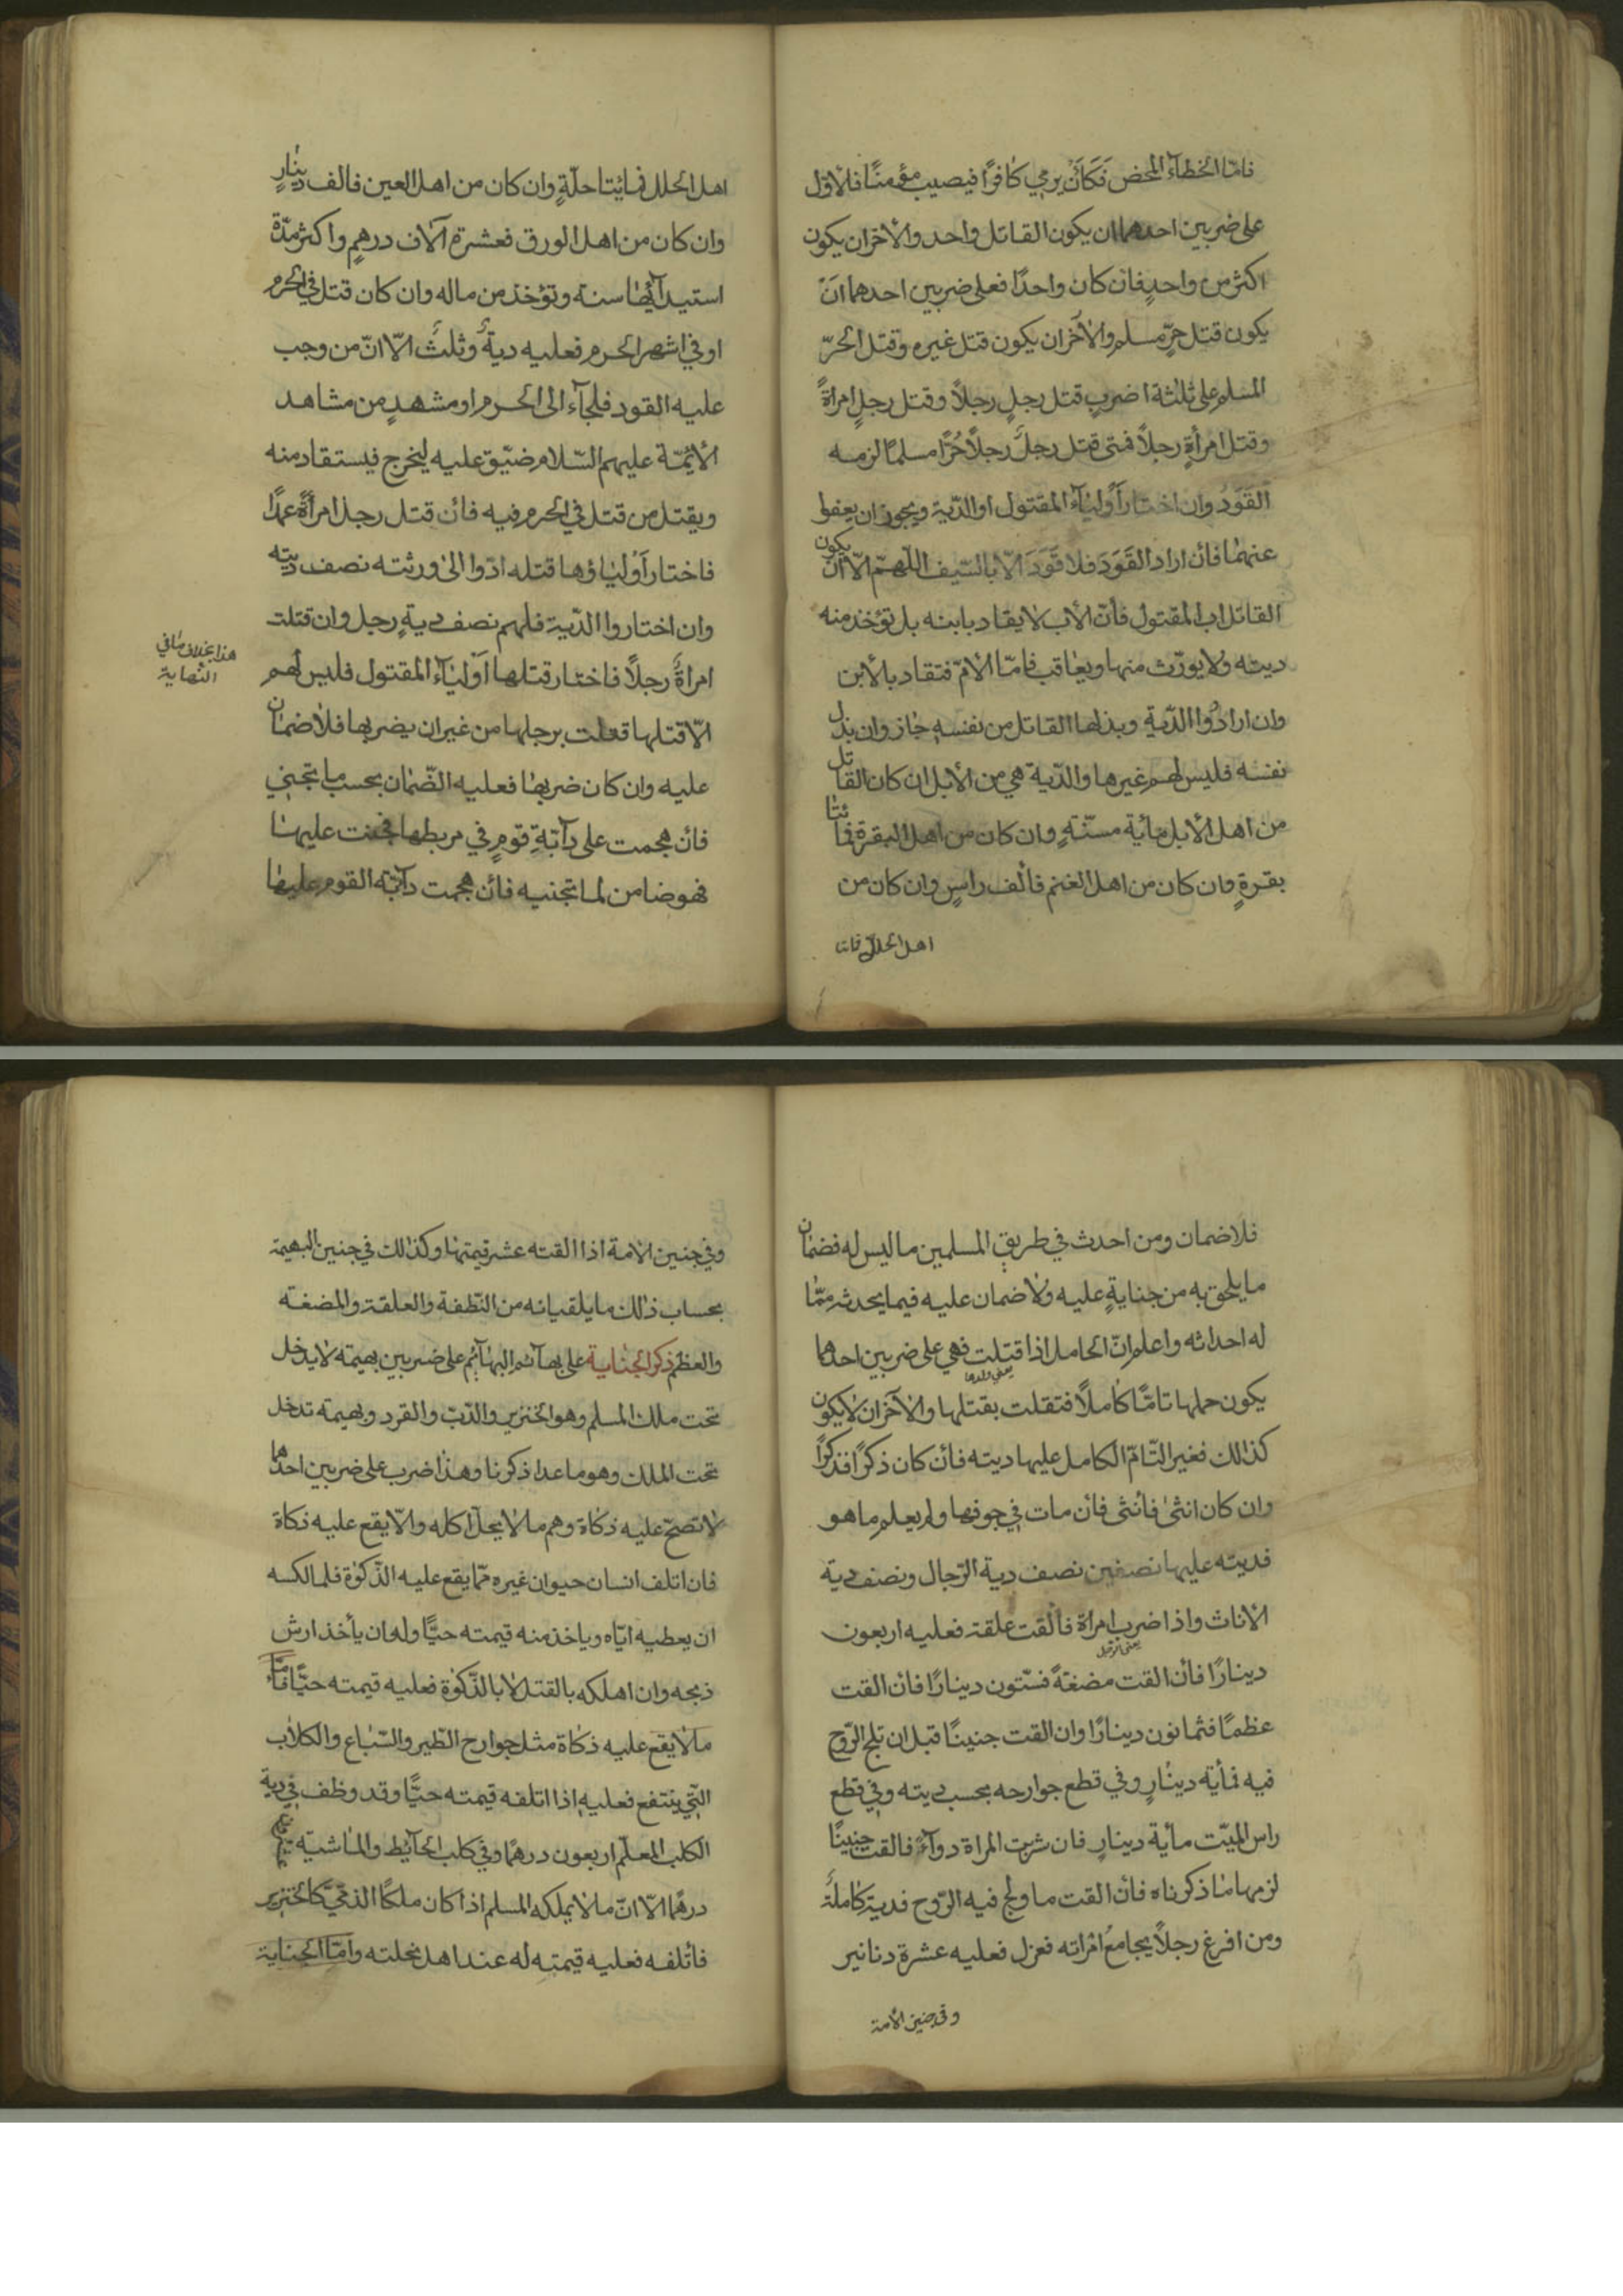 فامّا الخطاء المحض فَكَأن يرمي كافرًا فيصيب مؤمنًا فلاوّل
على ضربين احدهما ان يكون القاتل واحد والأخر ان يكون
اكثر من واحدٍ فان كان واحدًا فعلى ضربين احدهما انَ
يكون قتل حرٍّ مسلمٍ والاٰخر ان يكون قتل غيره وقتل الحرّ
المسلم على ثلثة اضربٍ قتل رجلٍ رجلاً وقتل رجلٍ امراةً
وقتل امرأةٍ رجلاً فمتى قتل رجلٌ رجلاً حُرًّا مسلمًا لزمه
القَوَدُ وان اختار أوليآء المقتول او الدّية ويجوز ان يعفوا
عنهما فأن اراد القَوَدَ فلا قَوَدَ الّا بالسّيف اللّهمّ الّا ان يكون
القاتل اب المقتول فأنّ الأب لا يقاد بابنه بل تؤخذ منه
ديته ولا يورّث منها ويعاقب فامّا الأمّ فتقاد بالأبن
وان ارادُوا الدّية وبذلها القاتل من نفسه جاز وان بذل
نفسه فليس لهم غيرها والدّية هي من الأبل ان كان القاتل
من اهل الأبل مأية مسنّةٍ وان كان من اهل البقرة فمائتا
بقرةٍ وان كان من اهل الغنم فألف راسٍ وان كان من
اهل الحلل فمائتا
اهل الحلل فمائتا حلّةٍ وان كان من اهل العين فالف دينارٍ
وان كان من اهل الورق فعشرة آلاف درهمٍ واكثر مدّة
استيدآئها سنة وتؤخذ من ماله وان كان قتل في الحرم
او في اشهر الحرم فعليه ديةٌ وثلثٌ الّا انّ من وجب
عليه القود فلجآء الى الحرم او مشهدٍ من مشاهد
الأئمّة عليهم السّلام ضيّق عليه ليخرج فيستقاد منه
ويقتل من قتل في الحرم فيه فأن قتل رجل امرأةً عمدًا
فاختار أوليٰاؤها قتله ادّوا الىٰ ورثته نصف ديته
وان اختاروا الدّية فلهم نصف ديةِ رجل وان قتلت
امراةٌ رجلاً فاختار قتلها أوليٰآء المقتول فليس لهم
الّا قتلها قعلت برجلها من غير ان يضربها فلا ضمان
عليه وان كان ضربها فعليه الضّمان بحسب ما تجني
فأن هجمت على دآبّةِ قومٍ في مربطها فجنت عليها
فهو ضامن لما تجنيه فأن هجمت دآبّة القوم عليها
هذا بخلاف ما في
النهاية
فلا ضمان ومن احدث في طريقِ المسلمين ما ليس له فضمان
ما يلحق به من جنايةٍ عليه ولا ضمان عليه فيما يحدثه ممّا
له احداثه واعلم انّ الحامل اذا قتلت فهي على ضربين احدهما
يعني ولدها
يكون حملها تامًّا كاملاً فتقلت بقتلها والاٰخر ان لا يكون
كذالك فغير التّامّ الكامل عليها ديته فأن كان ذكرًا فذكرًا
وان كان انثىٰ فأنثى فأن مات في جوفها ولم يعلم ما هو
فديته عليها نصفين نصف دية الرّجال ونصف دية
الأناث واذا ضرب امراة فألقت علقة فعليه اربعون
يعني الرجل
دينارًا فأن القت مضغةً فستّون دينارًا فأن القت
عظمًا فثمانون دينارًا وان القت جنينًا قبل ان تلج الرّوح
فيه فمأية دينارٍ وفي قطع جوارحه بحسب ديته وفي قطع
راس الميّت مأية دينارٍ فان شربت المراة دوآءً فالقت جنينًا
لزمها ما ذكرناه فأن القت ما ولج فيه الرّوح فدية كاملةً
ومن افرغ رجلاً يجامع امراته فعزل فعليه عشرة دنانير
وفي جنين الأمة
وفي جنين الامة اذا القته عشر قيمتها وكذالك في جنين البهيمة
بحساب ذٰلك ما يلقيانه من النّطفة والعلقة والمضغة
والعظم ذكر الجناية على بهآئم البهآئم على ضربين بهيمة لا يدخل
تحت ملك المسلم وهو الخنزير والدّبّ والقرد وبهيمة تدخل
تحت الملك وهو ما عدا ذكرنا وهذا ضرب على ضربين احدهما
لا تصحّ عليه ذكاة وهم ما لا يحلّ اكله والّا يقع عليه ذكاة
فان اتلف انسان حيوان غيره ممّا يقع عليه الذّكوٰة فلمالكه
ان يعطيه ايّاه وياخذ منه قيمته حيًّا وله ان يأخذ ارش
ذبحه وان اهلكه بالقتل لا بالذّكوٰة فعليه قيمته حيًّا فأمّا
ما لا يقع عليه ذكاة مثل جوارح الطّير والسّباع والكلاب
الّتي ينتفع فعليه اذا اتلفه قيمته حيًّا وقد وظف في دية
الكلب المعلّم اربعون درهمًا وفي كلب الحآئط والماشية
درهمًا الّا انّ ما لا يملكه المسلم اذا كان ملكًا الذمّيّ كالخنزير
فأتلفه فعليه قيمته له عند اهل نحلته وامّا الجناية